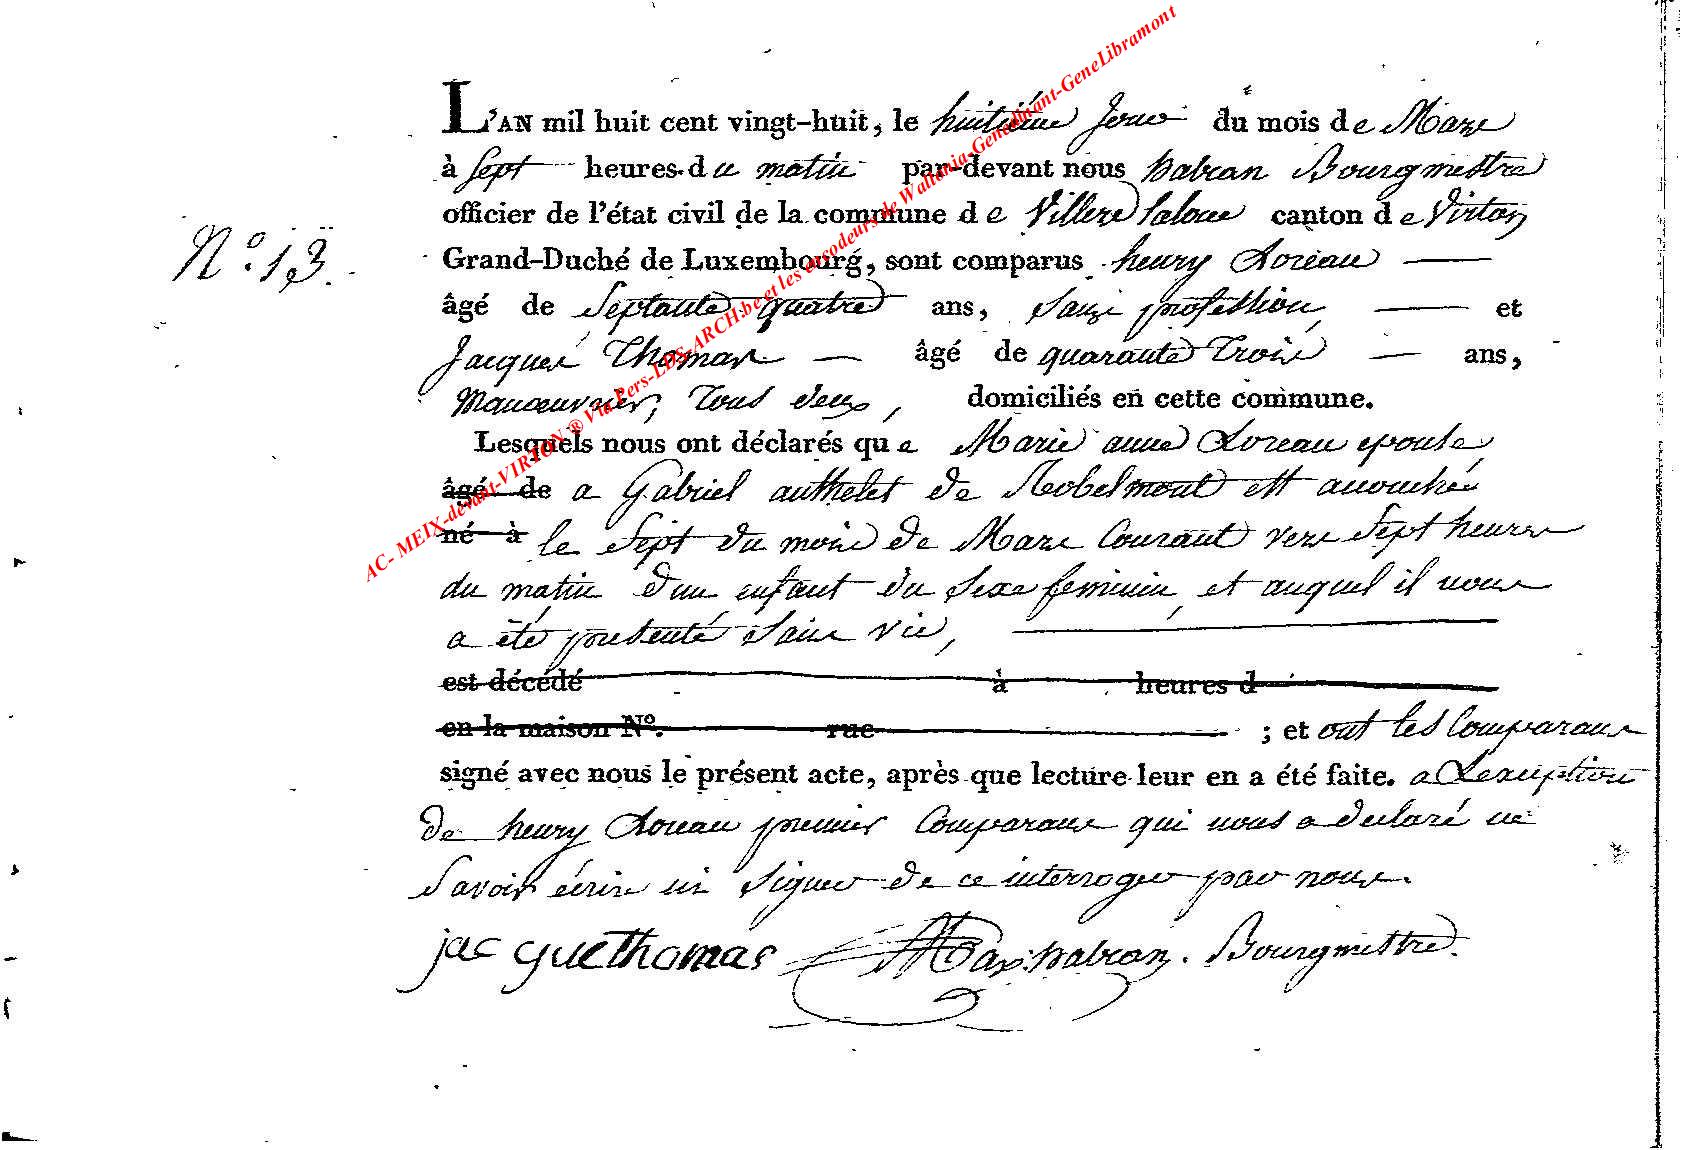 L'AN mil huit cent vingt-huit, le huitième Jour du mois de Mars
à Sept heures du matin par-devant nous habran Bourgmestre
officier de l'état civil de la commune de Villers Laloue canton de Virton
N.° 13.
Grand-Duché de Luxembourg, sont comparus henry Loreau
âgé de Septante quatre ans, Sans profession, et
Jacques Thomas âgé de quarante Trois ans,
Manœuvrier, Tous deux, domiciliés en cette commune.
Lesquels nous ont déclarés que Marie anne Loreau epouse
âgé de a Gabriel authelet de Robelmont est accouchée
né à le Sept du mois de Mars Courant vers Sept heures
du matin d'un enfant du Sexe feminin, et auquel il nous
a été presenté Sans vie,
est décédé à heures d
en la maison N°. rue ; et ont les Comparans
signé avec nous le présent acte, après que lecture leur en a été faite. a Lexception
de henry Loreau premier Comparans qui nous a declaré ne
Savoir écrire ni Signer de ce interroger par nous.
jacque Thomas Max. habran. Bourgmestre.
AC- MEIX-devant-VIRTON ® Via Pers-LDS-ARCH:be et les encodeurs de Wallonia-Genedinant-GeneLibramont